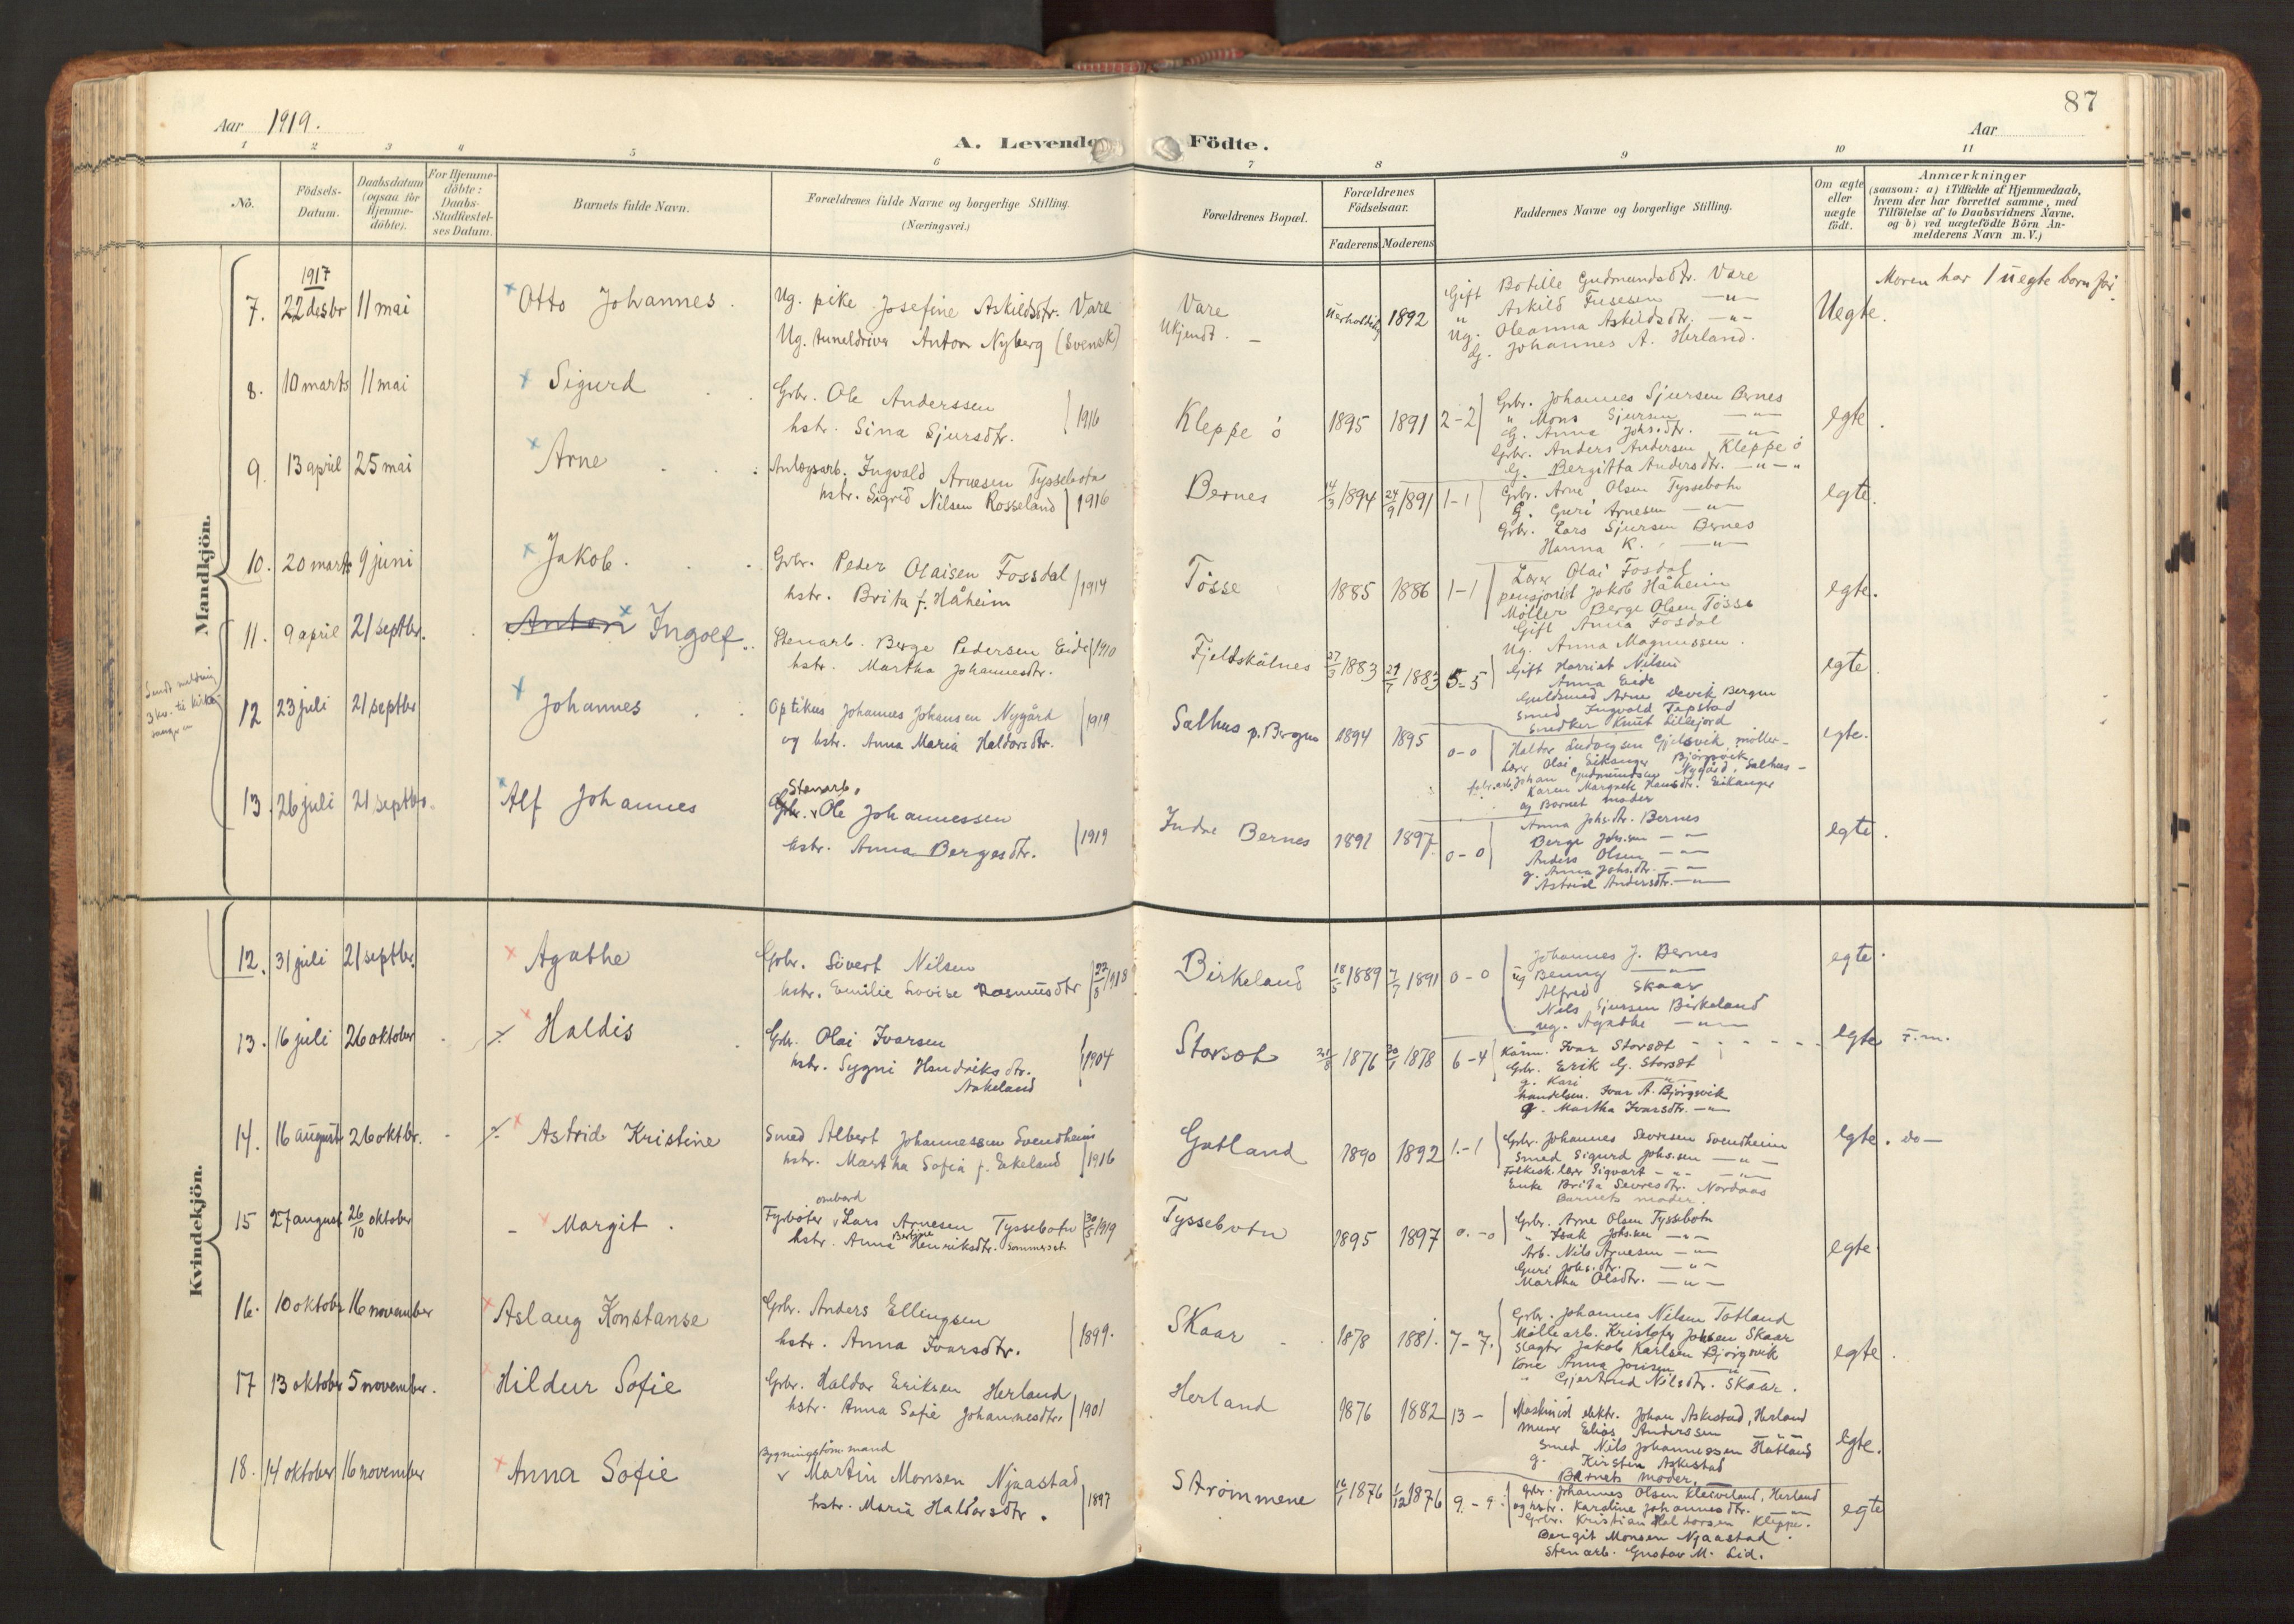 87
Aar 1919.
Aar
A. Levende Födte.
1 2 3 4 5 6 7 8 9 10 11
No.
Födsels-
Datum.
Daabsdatum
(ogsaa for
Hjemme-
döbte).
For Hjemme-
döbte:
Daabs-
Stadfæstel-
ses Datum.
Barnets fulde Navn.
Forældrenes fulde Navne og borgerlige Stilling.
(Næringsvei.)
Forældrenes Bopæl.
Forældrenes
Födselsaar.
Faderens Moderens
Faddernes Navne og borgerlige Stilling.
Om ægte
eller
uægte
födt.
Anmærkninger
(saasom: a) i Tilfælde af Hjemmedaab,
hvem der har forrettet samme, med
Tilföielse af to Daabsvidners Navne.
og b) ved uægtefödte Börn An-
melderens Navn m. V.)
Mandkjön.
1917
7. 22 desbr 11 mai
Otto Johannes.
Ug. pike Josefine Askildsdtr. Vare
Ug. tuneldriver Anton Nyberg (Svensk)
Vare
Ukjendt. –
1892
Gift Botille Gudmundsdtr. Vare
" Askild Fusesen —"—
Ug. Oleanna Askildsdtr. —"—
G. Johannes A. Herland.
Uegte.
Moren har 1 uegte born før.
8. 10 marts 11 mai
Sigurd
Gbr. Ole Anderssen
hstr. Sina Sjursdtr.
1916
Kleppe ö
1895 1891 2-2
Gbr. Johannes Sjursen Bernes
" Mons Sjursen —"—
G. Anna Johsdtr. —"—
Gbr. Anders Andersen Kleppe ö
G. Bergitta Andersdtr. —"—"
egte.
9. 13 april 25 mai
Arne
Anlægsarb. Ingvald Arnesen Tyssebotn
hstr. Sigrid Nilsen Rosseland
1916
Bernes
14/3 1894 24/9 1891 1-1
Gbr. Arne Olsen Tyssebotn
G. Guri Arnesen —"—
Gbr. Lars Sjursen Bernes
Hanna K. —"—
egte.
10. 20 marts 9 juni
Jakob.
Gbr. Peder Olaisen Fossdal
hstr. Brita f. Håheim
1914
Tösse
1885 1886 1-1
Lærer Olai Fosdal
pensjonist Jakob Håheim
Möller Berge Olsen Tösse
Gift Anna Fosdal
Ug. Anna Magnussen.
egte.
Sendt melding
3 kv. til kirke-
sangeren
11. 9 april 21 septbr.
Anton Ingolf.
Stenarb. Berge Pedersen Eide
hstr. Martha Johannesdtr.
1910
Fjeldskålnes
27/3 1883 29/7 1883 5-5
Gift Harriet Nilsen
Anna Eide
Guldsmed Arne Devik Bergen
Smed Ingvald Tepstad
Snedker Knut Lillejord
egte.
12 23 juli 21 septbr
Johannes
Optikus Johannes Johansen Nygård
og hstr. Anna Maria Haldorsdtr.
1919
Salhus p. Bergen
1894 1895 0-0
Haldor Ludvigsen Gjelsvik, möller -
Lærer Olai Eikanger Björgsvik
fabr.arb. Johan Gudmundsen Nygård, Salhus -
Karen Margrete Hansdtr. Eikanger
og Barnet moder
egte.
13. 26 juli 21 septbr.
Alf Johannes
Stenarb.
Gbr. v Ole Johannessen
hstr. Anna Bergesdtr.
1919
Indre Bernes
1891 1897 0-0
Anna Johsdtr. Bernes
Berge Johssen —"—
Anders Olsen —"—
g. Anna Johsdtr. —"—
Astrid Andersdtr. —"—
egte.
Kvindekjön.
12. 31 juli 21 septbr.
Agathe
Gbr. Sivert Nilsen
hstr. Emilie Lovise Rasmusdtr
22/8 1918
Birkeland
18/5 1889 7/7 1891 0-0
Johannes J. Bernes
ug Benny —"—
Alfred Skaar
Nils Sjursen Birkeland
ug. Agathe —"—
egte.
13. 16 juli 26 oktober
Haldis
Gbr. Olai Ivarsen
hstr. Sygni Hendriksdtr.
Askeland
1904
Storset
21/8 1876 30/1 1878 6-4
Kårm. Ivar Storset
Gbr. Erik G. Storset
g. Kari —"—
handelsm. Ivar A. Björgsvik
g. Martha Ivarsdtr. —"—
egte F.m.
14. 16 august 26 oktbr.
Astrid Kristine
Smed Albert Johannessen Svendheim
hstr. Martha Sofia f. Eikeland
1916
Gotland
1890 1892 1-1
Gbr. Johannes Sevresen Svendheim
Smed Sigurd Johssen —"—
Folkesk.lærer Sigvart —"— —"—
Enke Brita Sevresdtr. Nordaas
Barnets moder.
egte. do —
15 27 august 26/10 oktober
Margit.
ombord
Fyrböter v Lars Arnesen Tyssebotn
hstr. Anna Bertine Henriksdtr. Sommerset
30/5 1919
Tyssebotn
1895 1897 0-0
Gbr. Arne Olsen Tyssebotn
" Isak Johssen —"—
Arb. Nils Arnesen —"—
Guri Johsdtr. —"—
Martha Olsdtr. —"—
egte.
16. 10 oktobr 16 november
Aslaug Konstanse
Gbr. Anders Ellingsen
hstr. Anna Ivarsdtr.
1899.
Skaar
1878 1881. 7-7.
Gbr. Johannes Nilsen Totland
Möllearb. Kristofer Johsen Skaar
Slagter Jakob Karlsen Björgsvik
kone Anna Jonsen —"—
" Gjertrud Nilsdtr. Skaar.
egte.
17 13 oktober 5 november.
Hildur Sofie
Gbr. Haldor Eriksen Herland
hstr. Anna Sofie Johannesdtr.
1901
Herland
1876 1882 13 -
Maskinist elektr. Johan Askestad, Herland
Murer Elias Anderssen —"—
Smed Nils Johannessen Hatland
g. Kirsten Askestad
Barnets moder.
egte.
18. 14 oktober 16 november
Anna Sofie
Bygningstöm.mand
v Martin Monsen Njaastad
hstr. Maria Haldorsdtr.
1897
Strömmene
16/1 1876 1/12 1876 9-9.
Gbr. Johannes Olsen Kleiveland, Herland
og hstr. Karoline Johannesdtr. —"—
Gbr. Kristian Haldorsen Kleppe.
Bergit Monsen Njaastad
Stenarb. Gustav M. Lid.
egte